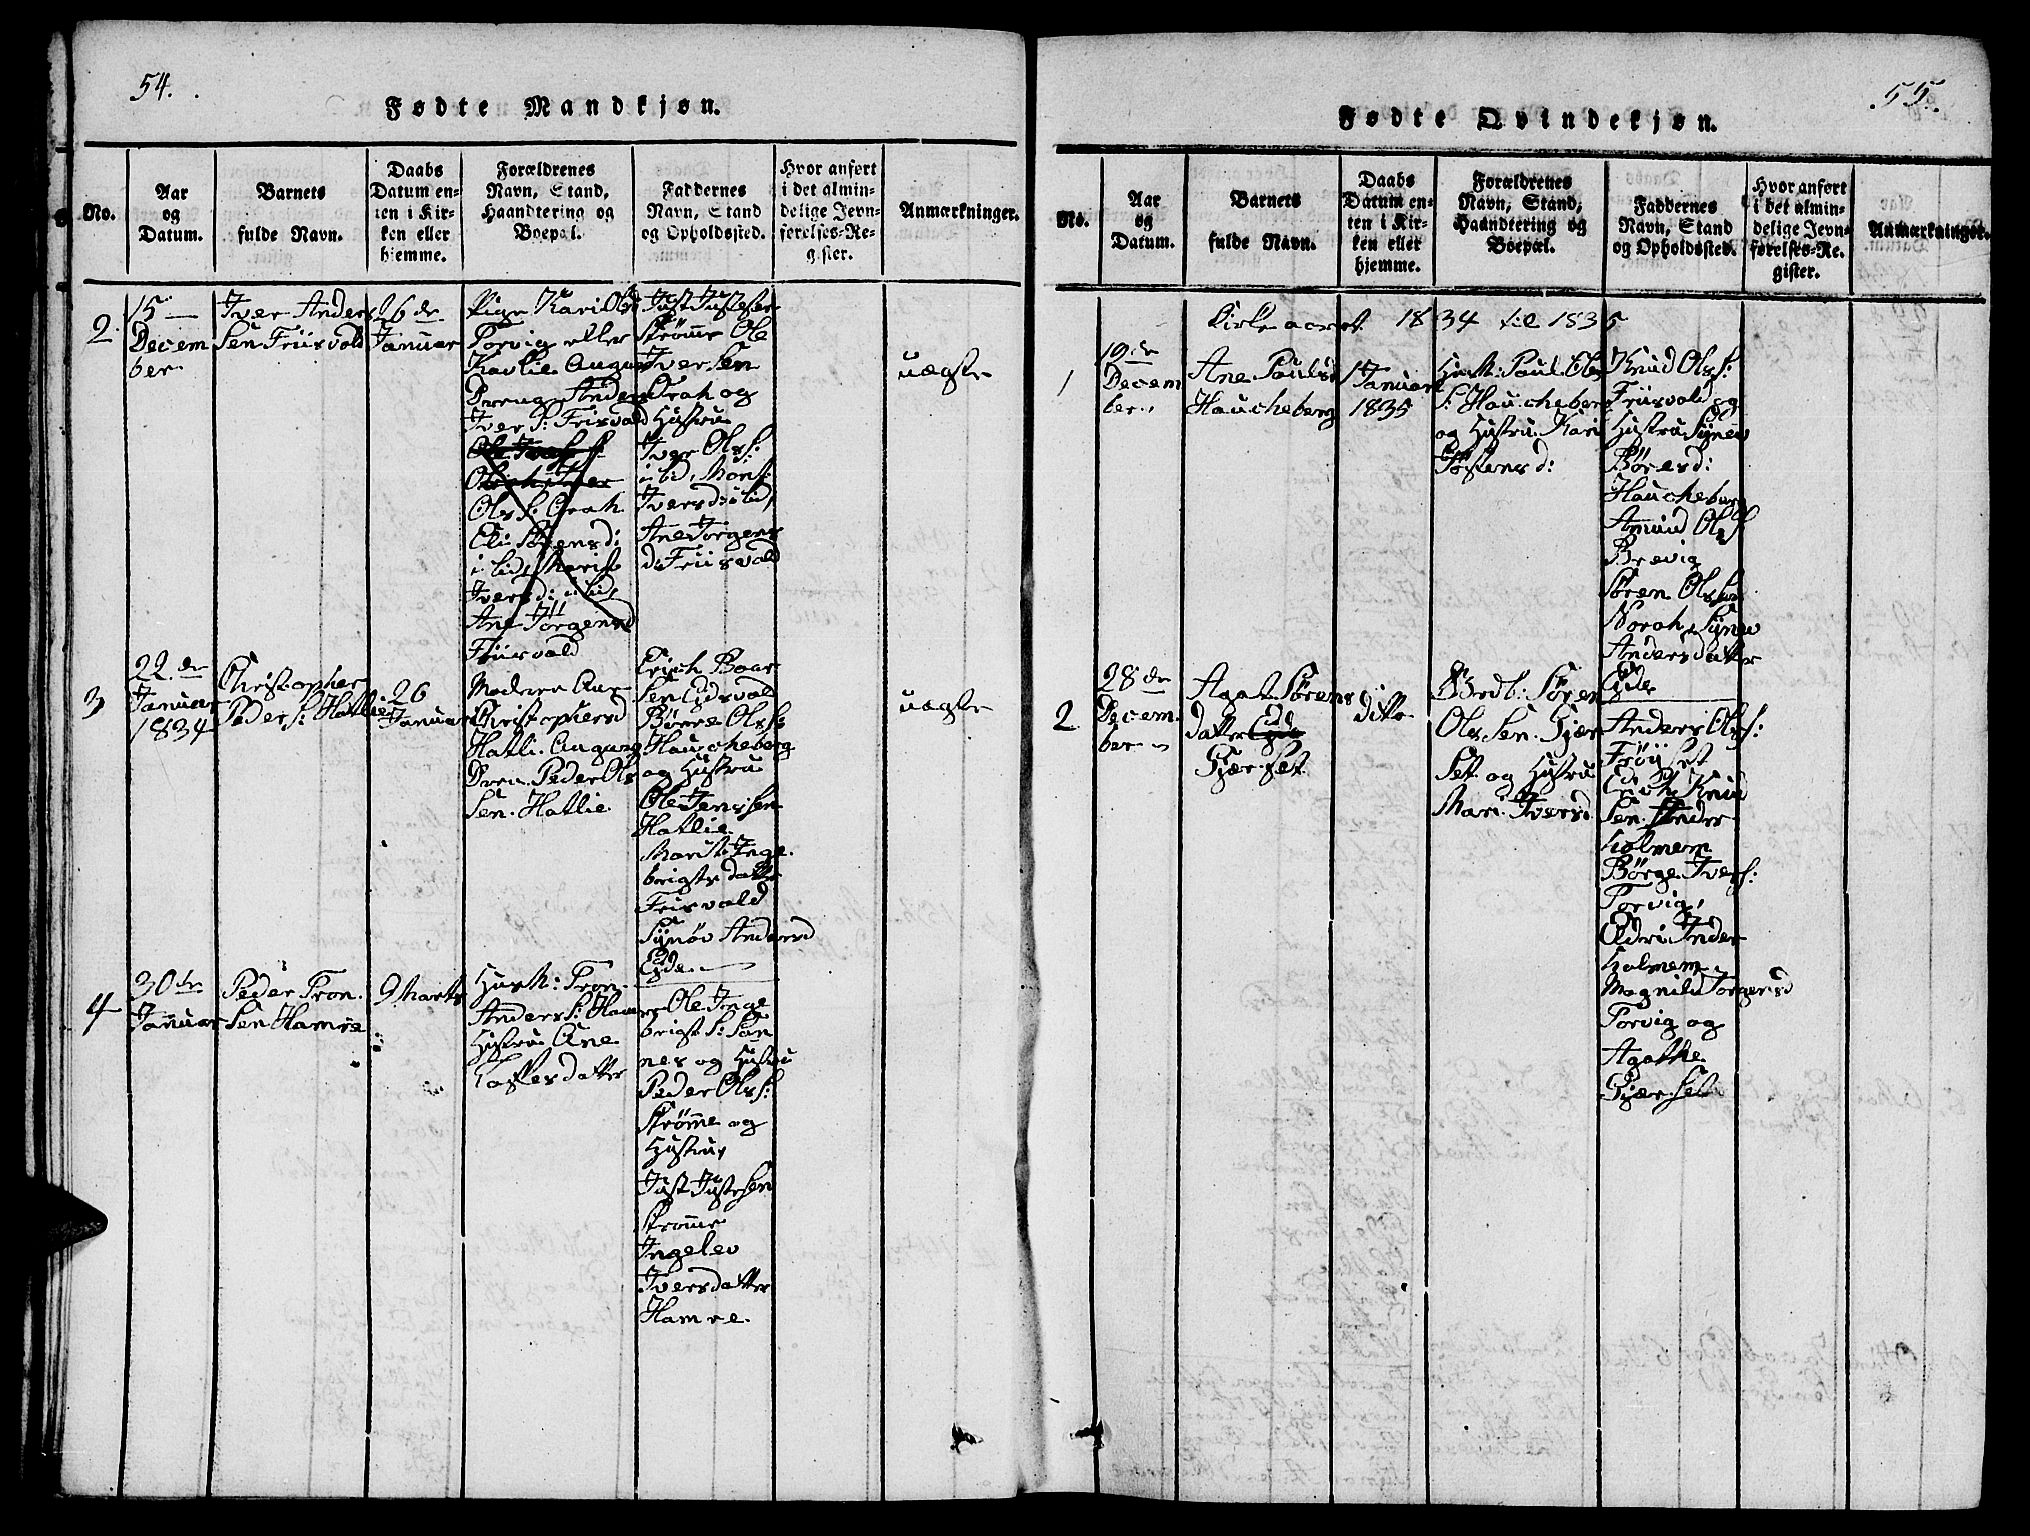 54.
Fødte Mandkjøn.
No.
Aar
og
Datum.
Barnets
fulde Navn.
Daabs
Datum en-
ten i Kir-
ken eller
hjemme.
Forældrenes
Navn, Stand,
Haandtering og
Boepæl.
Faddernes
Navn, Stand
og Opholdssted.
Hvor anført
i det almin-
delige Jevn-
førelses-Re-
gister.
Anmærkninger.
2
15
Decem
ber
Iver Anders
Sen Friisvold
26 de
Januar
Pige Kari Ols
Torvig eller
Havlie
Dreng Anders
Iver S: Friisvold
Ols S: Orah
Eli Sørensd:
i lid, Marit
Iversd: i lid,
Ane Jørgensd
Friisvold
Just Justesen
Strømme Ole
Iversen
Orah og
Hustru
Iver Olss:
i lid, Mons
Iversd: i lid,
Ane Jørgens
d: Friisvold
uægte
3
22 de
Januar
1834
Christopher
Peders: Hatlie
26
Januar
Moderen Ane
Christophersd
Hatli. Angivne
Peder Ols
Sen. Hatlie
Erich Boar
Sen Eidsvold
Børre Olss
Haucheberg
og Hustru
Ole Jenssen
Hatlie
Marit Inge
brigts datter
Friisvold
Synøv Andersd
Eyde
uægte
4
30 de
Januar
Peder Tron
Sen Hamre
9 Marts
Husm: Tron
Anders S: Hamre
Hustru Ane
Lassesdatter
Ole Inge
brigt S: San
nes og Hustru
Peder Olss:
Strømme og
Hustru,
Just Justesen
Strømme
Ingelev
Iversdatter
Hamre.
55.
Fødte Qvindekjøn.
No.
Aar
og
Datum.
Barnets
fulde Navn.
Daabs
Datum en-
ten i Kir-
ken eller
hjemme.
Forældrenes
Navn, Stand,
Haandtering og
Boepæl.
Faddernes
Navn, Stand
og Opholdssted.
Hvor anført
i det almin-
delige Jevn-
førelses-Re-
gister.
Anmærkninger.
Kirke aaret 1834 til 1835
1
19 de
Decem
ber
Ane Pauls
Haucheberg
1 Januar
1835
Husm: Paul Ols
S: Haucheberg
og Hustru Kari
Tostensd:
Knud Olss:
Friisvold og
Hustru Synøv
Børesd:
Haucheberg
Amund Olss
Brevig
Søren Olss
Norah, Synøv
Andersdatter
Eyde
2
28 de
Decem
ber
Agat Sørens
datter Eyde
Gjærset
ditto
Grdb: Søren
Olssen. Gjær
Set og Hustru
Mari Iversd
Anders Olss:
Frøyset
Erich Knud
Sen. Inder
holmem
Børge Ivers:
Torvig,
Eldri Inder
holmem
Magnild Torgersd
Torvig og
Agathe
Gjærset